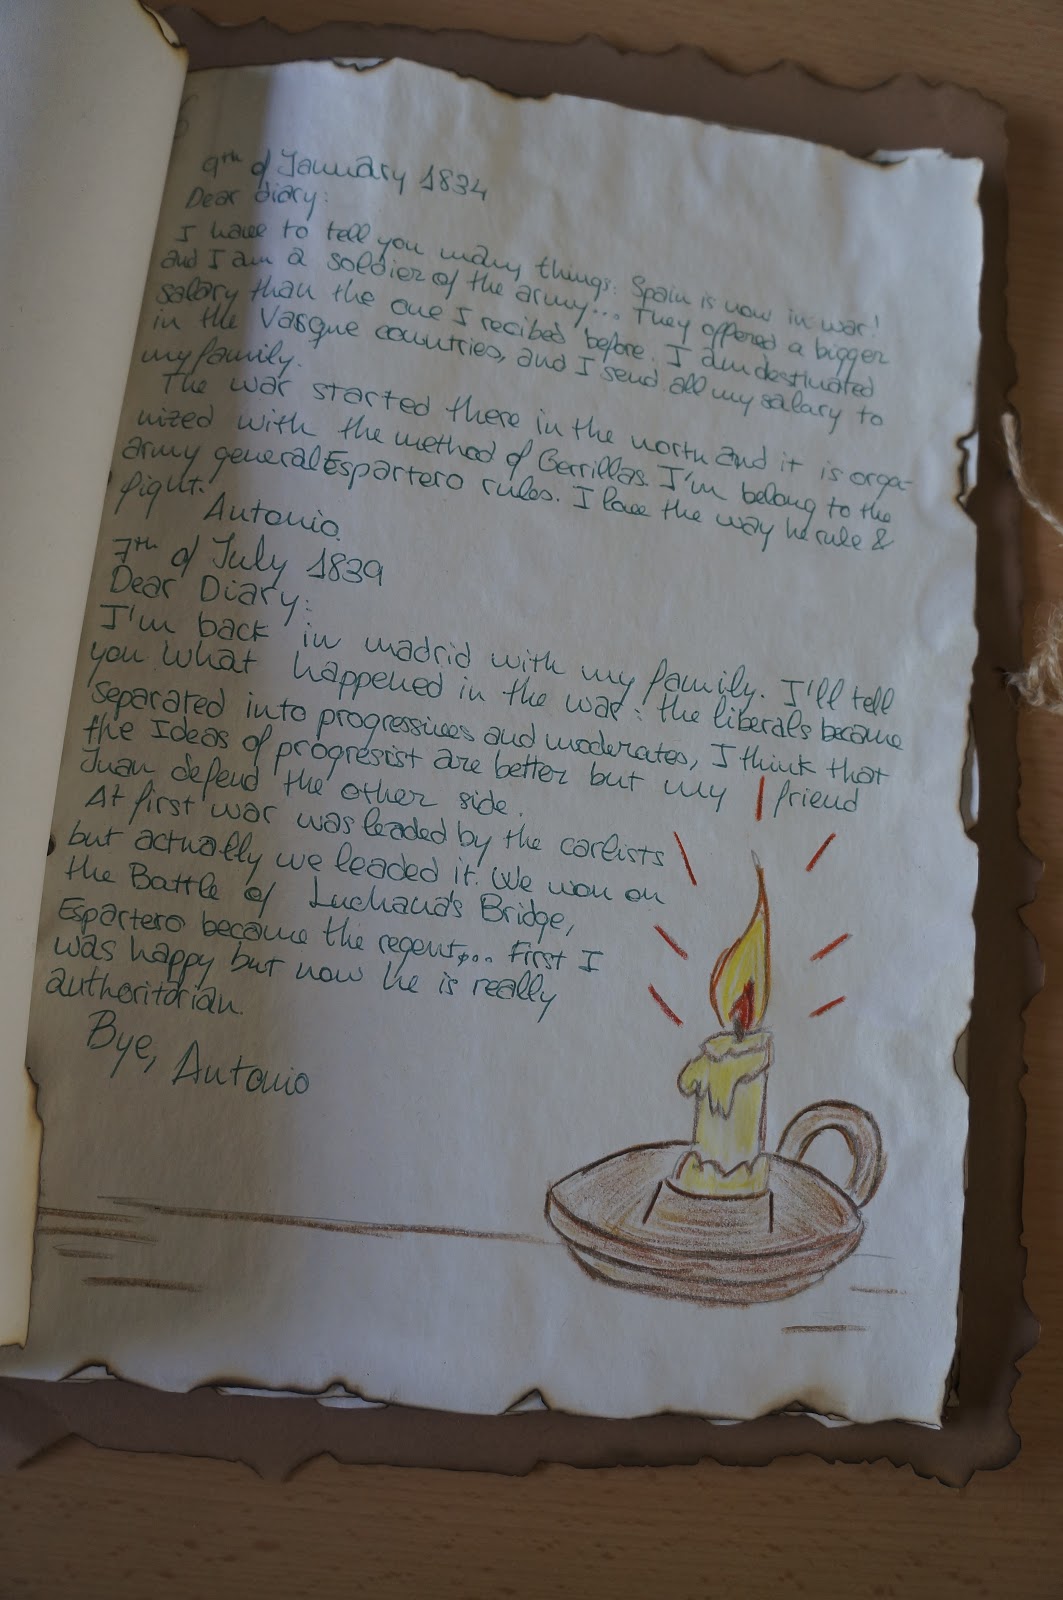 9th of January 1834
Dear diary:
I have to tell you many things: Spain is now in war!
and I am a soldier of the army... They offered a bigger
salary than the one I recibed before. I am destinated
in the Vasque countries, and I send all my salary to
my family.
The war started there in the north and it is orga-
nized with the method of Gerrillas. I'm belong to the
army general Espartero rules. I love the way he rule &
fight.
Antonio.
7th of July 1839
Dear Diary:
I'm back in madrid with my family. I'll tell
you what happened in the war: the liberals became
separated into progressives and moderates, I think that
the Ideas of progresist are better but my friend
Juan defend the other side.
At first war was leaded by the carlists
but actually we leaded it. We won on
the Battle of Luchana's Bridge,
Espartero became the regent... First I
was happy but now he is really
authoritorian.
Bye, Antonio